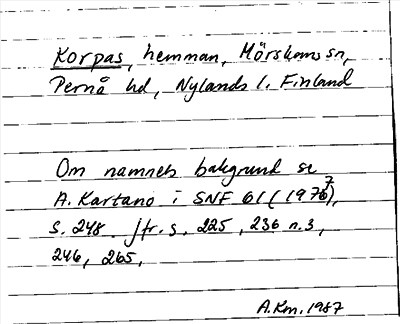 Korpas, hemman, Mörskoms sn,
Pernå hd, Nylands l. Finland
Om namnets bakgrund se
A. Kartano i SNF 61 (1977),
s. 248. Jfr. s. 225, 236 n.3,
246, 265.
A.Km. 1987